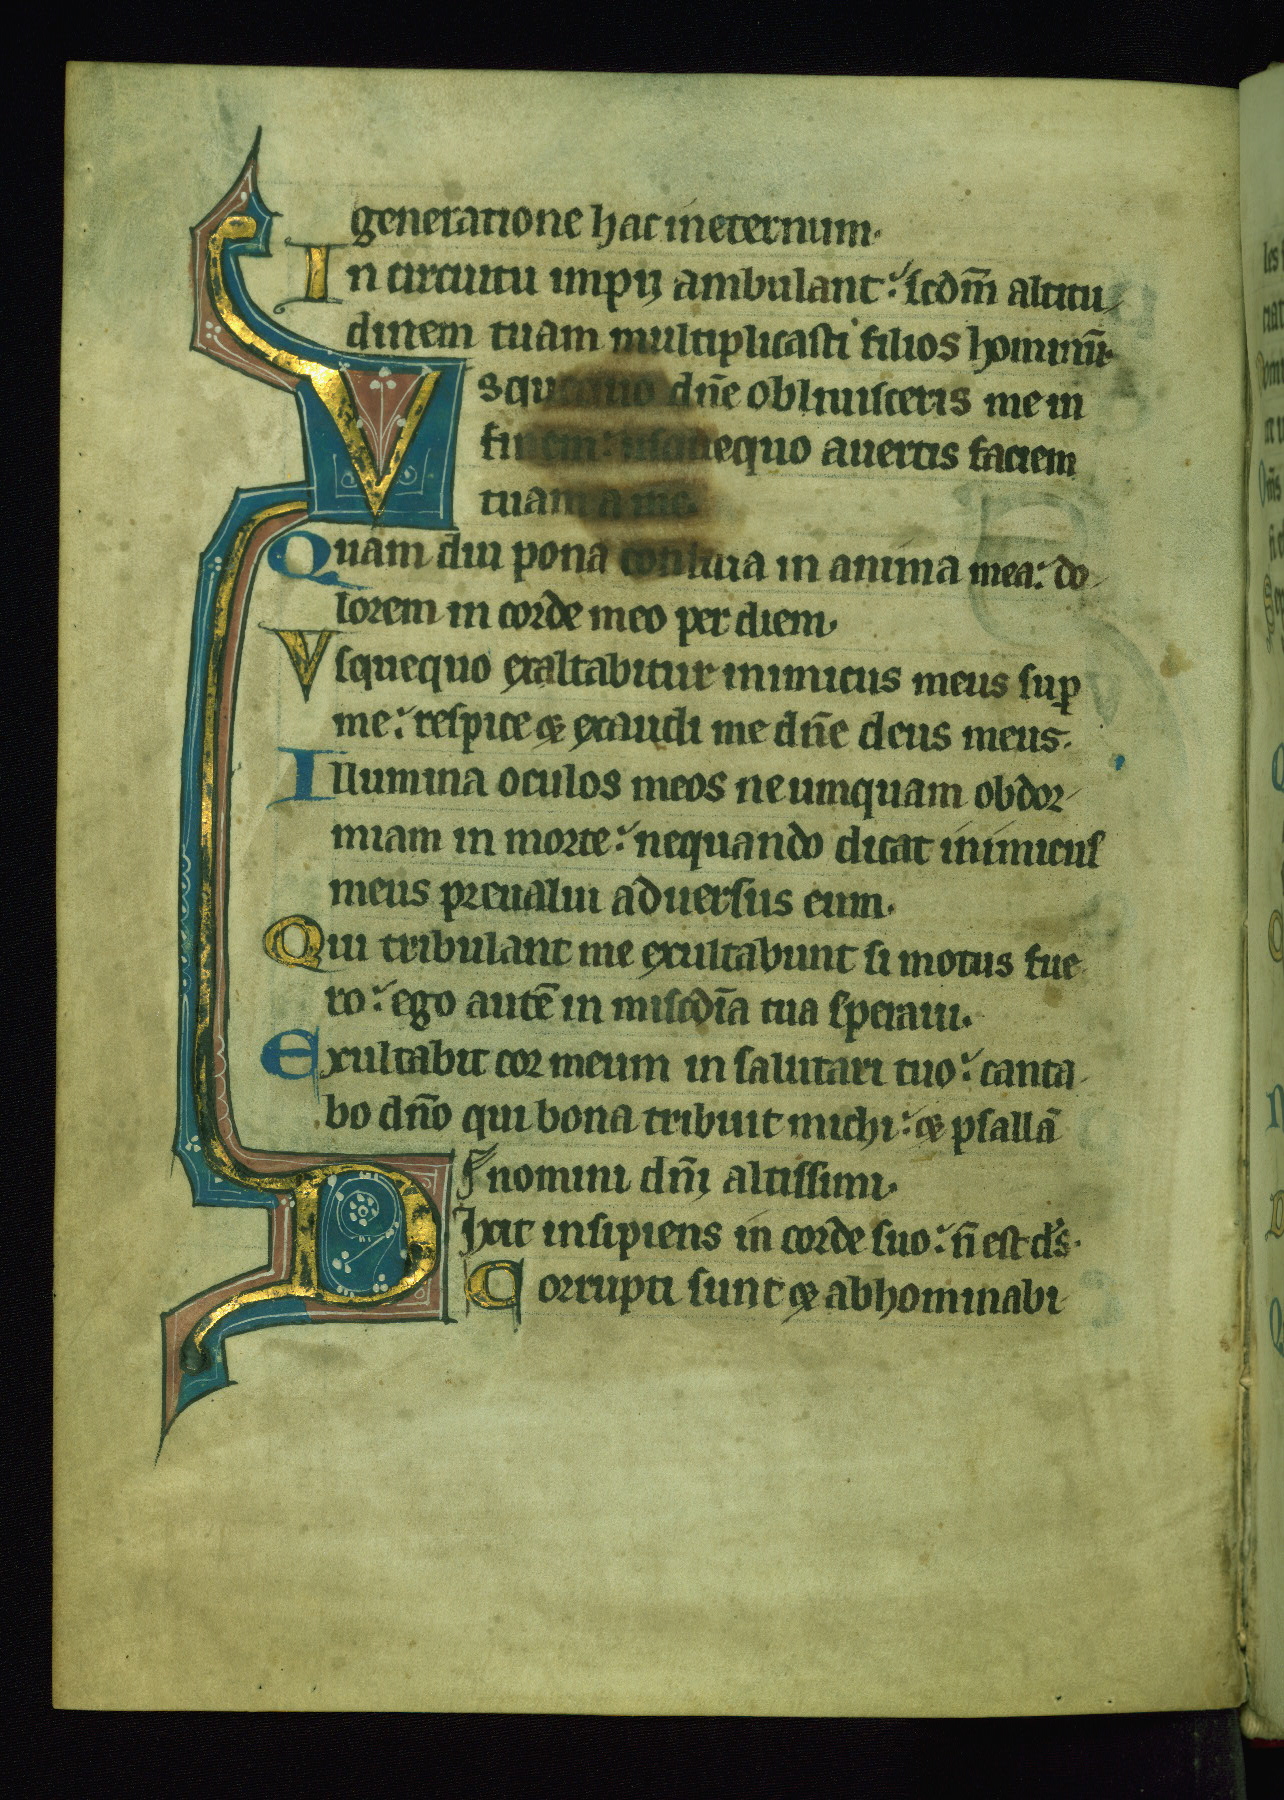 generatione hac ineternum.
In circuitu impij ambulant: scdm̄ altitu
dinem tuam multiplicasti filios hominū.
Vsquequo dn̄e obliuisceris me in
finem: usquequo auertis faciem
tuam a me.
Quam diu pona consilia in anima mea: do
lorem in corde meo per diem.
Vsquequo exaltabitur inimicus meus suꝑ
me: respice & exaudi me dn̄e deus meus.
Illumina oculos meos ne umquam obdor
miam in morte: nequando dicat inimicus
meus preualui aduersus eum.
Qui tribulant me exultabunt si motus fue
ro: ego autē in misćdīa tua speraui.
Exultabit cor meum in salutari tuo: canta
bo dn̄o qui bona tribuit michi: & psallā
nomini dn̄i altissimi.
Dixit insipiens in corde suo: n̄ est ds̄.
Corrupti sunt & abhominabi